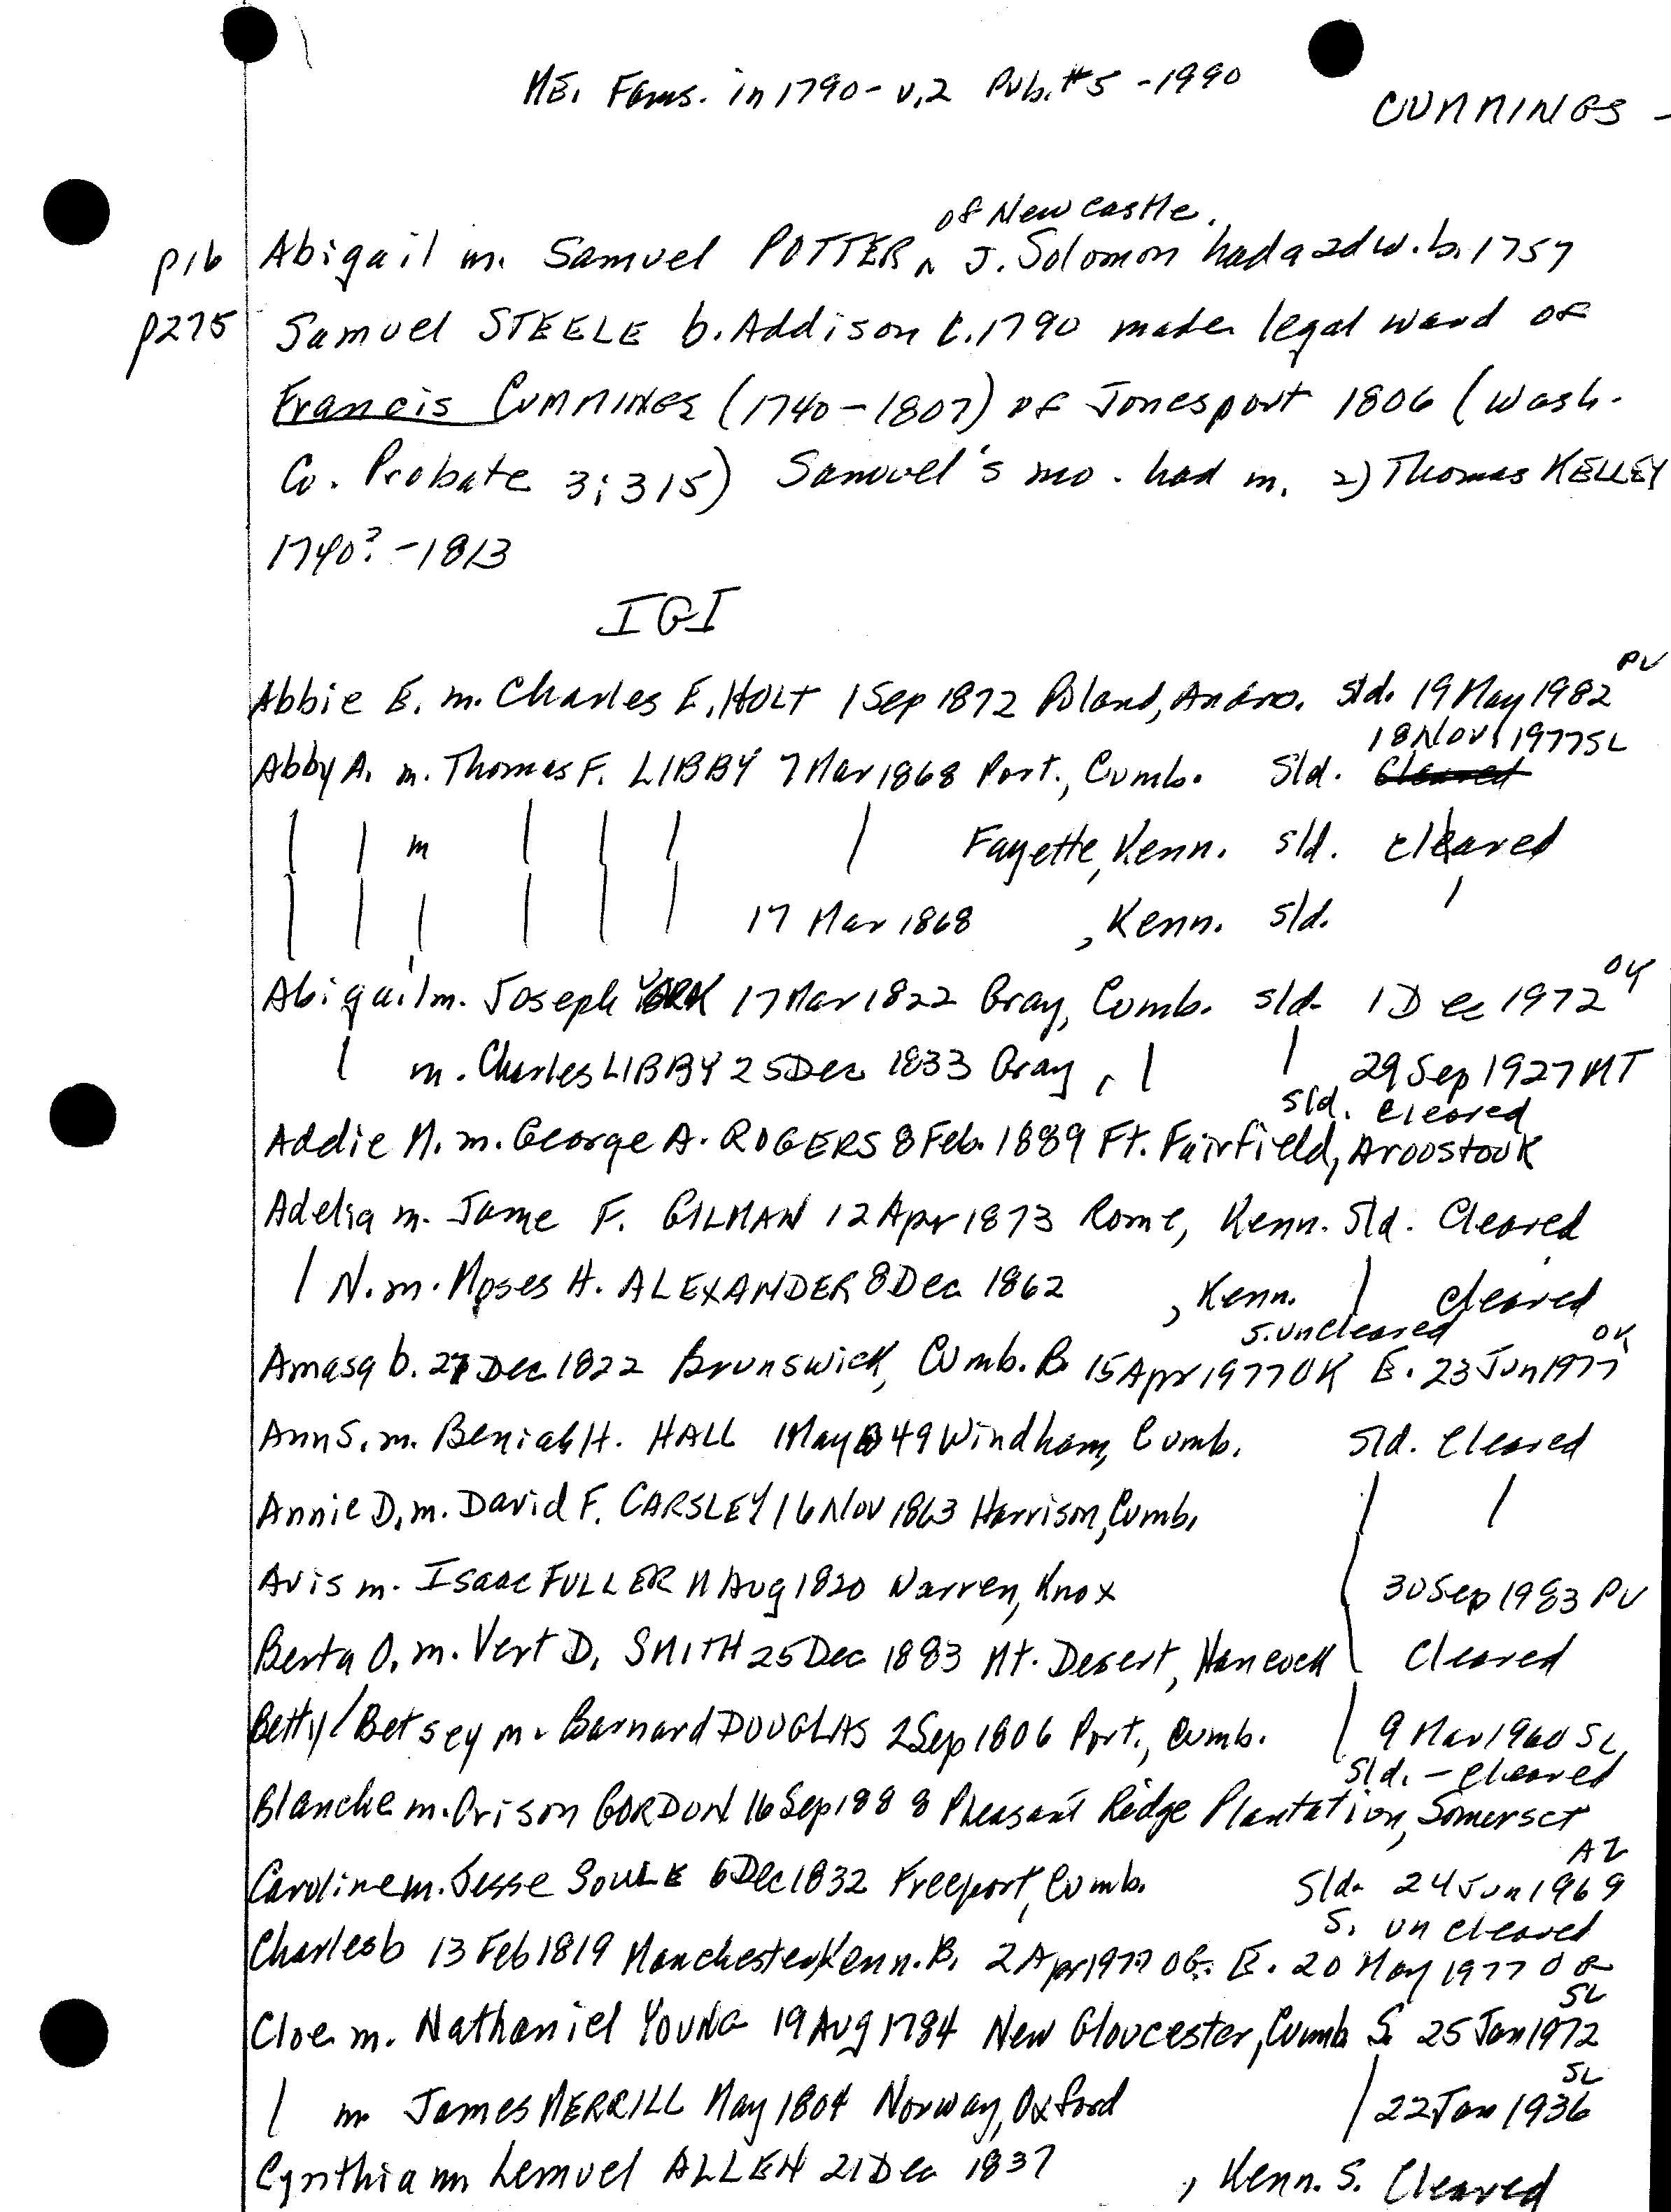 ME. Fams. in 1790 - v.2 Pub. #5 - 1990
CUMMINGS -
of Newcastle.
p16 Abigail m. Samuel POTTER ^ J. Solomon had a 2d w. b. 1757
p275 Samuel STEELE b. Addison c. 1790 made legal ward of
Francis CUMMINGS (1740-1807) of Jonesport 1806 (Wash.
Co. Probate 3:315) Samuel's mo. had m. 2) Thomas KELLEY
1740? - 1813
IGI
Abbie E. m. Charles E. HOLT 1 Sep 1872 Poland, Andro. sld. 19 May 1982 PV
18 Nov 1977 SL
Abby A. m. Thomas F. LIBBY 7 Mar 1868 Port., Cumb. sld. Cleared
| | m | | | | Fayette, Kenn. sld. cleared
| | | | | | 17 Mar 1868 , Kenn. sld. |
Abigail m. Joseph YORK 17 Mar 1822 Gray, Cumb. sld. 1 Dec 1972
| m. Charles LIBBY 25 Dec 1833 Gray, | | 29 Sep 1927 MT
sld. cleared
Addie M. m. George A. ROGERS 8 Feb. 1889 Ft. Fairfield, Aroostook
Adelia m. Jame F. GILMAN 12 Apr 1873 Rome, Kenn. Sld. Cleared
| N. m. Moses H. ALEXANDER 8 Dec 1862 , Kenn. | cleared
S. uncleared
Amasa b. 27 Dec 1822 Brunswick, Cumb. B. 15 Apr 1977 OK E. 23 Jun 1977 OK
Ann S. m. Beniah H. HALL 1 May 1849 Windham, Cumb. Sld. Cleared
Annie D. m. David F. CARSLEY 16 Nov 1863 Harrison, Cumb. | |
Avis m. Isaac FULLER 11 Aug 1820 Warren, Knox | 30 Sep 1983 PV
Berta O. m. Vert D. SMITH 25 Dec 1883 Mt. Desert, Hancock | Cleared
Betty/Betsey m. Barnard DOUGLAS 2 Sep 1806 Port., Cumb. | 9 Mar 1960 SL
Sld. - cleared
Blanche m. Orison GORDON 16 Sep 1888 Pleasant Ridge Plantation, Somerset
Caroline m. Jesse SOULE 6 Dec 1832 Freeport, Cumb. Sld. 24 Jun 1969 AZ
S. uncleared
Charles b 13 Feb 1819 Manchester, Kenn. B. 2 Apr 1977 OG. E. 20 May 1977
Cloe m. Nathaniel YOUNG 19 Aug 1784 New Gloucester, Cumb S. 25 Jan 1972 SL
| m James MERRILL May 1804 Norway, Oxford | 22 Jan 1936 SL
Cynthia m Lemuel ALLEN 21 Dec 1837 , Kenn. S. Cleared